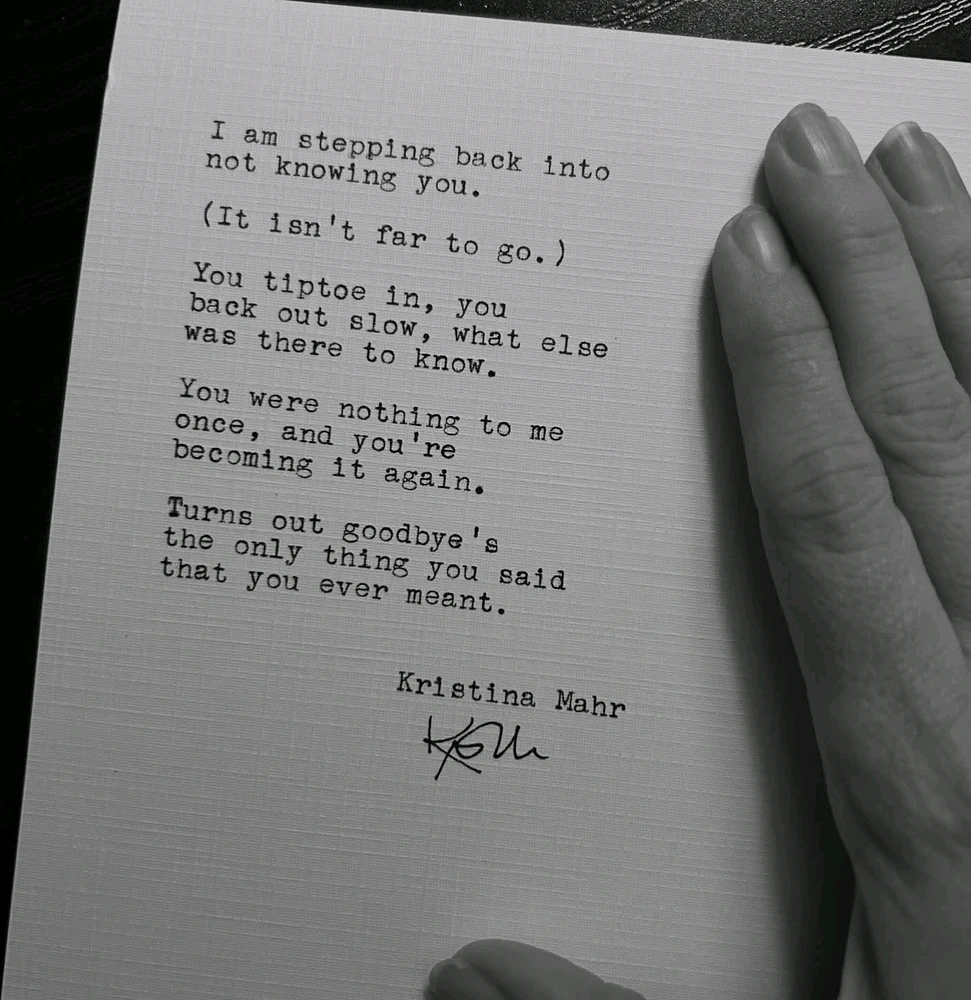 I am stepping back into
not knowing you.
(It isn't far to go.)
You tiptoe in, you
back out slow, what else
was there to know.
You were nothing to me
once, and you're
becoming it again.
Turns out goodbye's
the only thing you said
that you ever meant.
Kristina Mahr